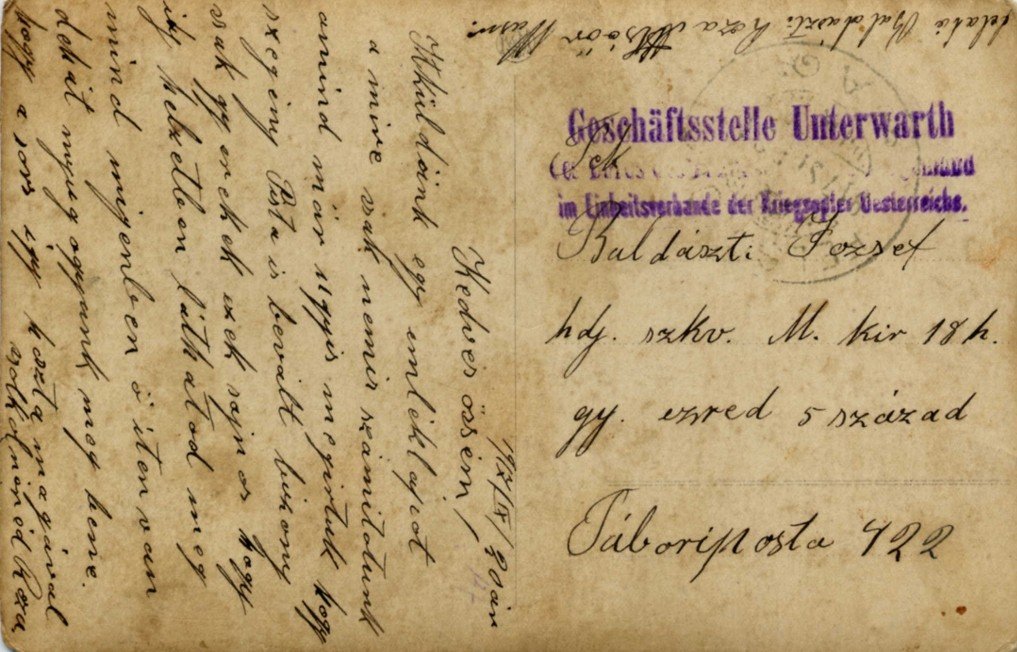 feladó Baldászti Roza Alsóőr Vasm.
Geschäftsstelle Unterwarth
im Einheitsverbande der Kriegsopfer Oesterreichs.
Tek
Baldászti József
hdj. szkv. M. kir 18 h.
gy. ezred 5 század
Táboriposta 422
1917/IX/30án
Kedves össém,
Itkül döink egy emléklapot
a mire csak nemis számitotunk
amind már ugyis megirtuk hogy
szegény Pista is bevált bizony
csak gyerekek ezek sajnos hogy
ily helzetben láthatod meg
mind mijenben ő iten van
dehát nyugogyunk meg bene.
hogy a sors igy hozta magával
Roza